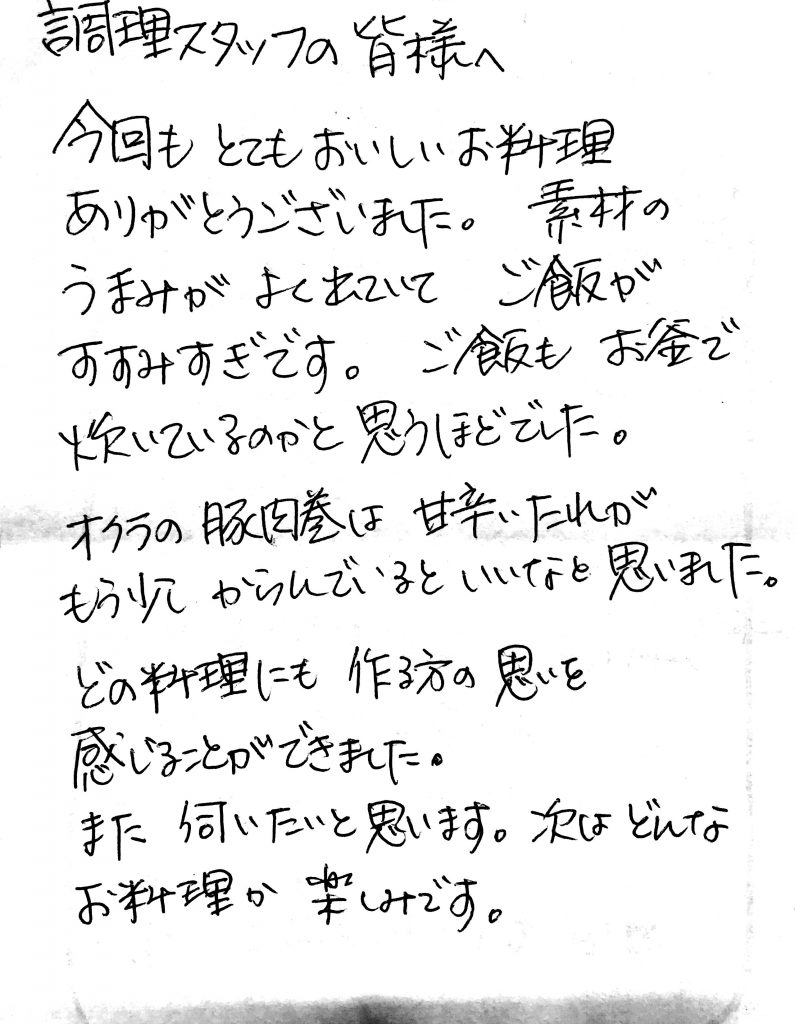 調理スタッフの皆様へ
今回も とても おいしい お料理
ありがとうございました。 素材の
うまみが よく出ていて ご飯が
すすみすぎです。 ご飯も お釜で
炊いているのかと 思うほどでした。
オクラの 豚肉巻は 甘辛いたれが
もう少し からんでいると いいなと 思いました。
どの料理にも 作る方の 思いを
感じることができました。
また 伺いたいと思います。次は どんな
お料理か 楽しみです。